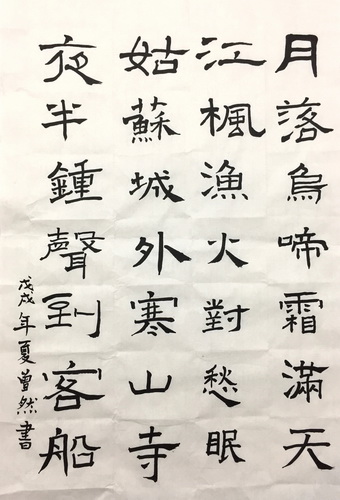 月落烏啼霜滿天
江楓漁火對愁眠
姑蘇城外寒山寺
夜半鍾聲到客船
戊戌年夏曾然書